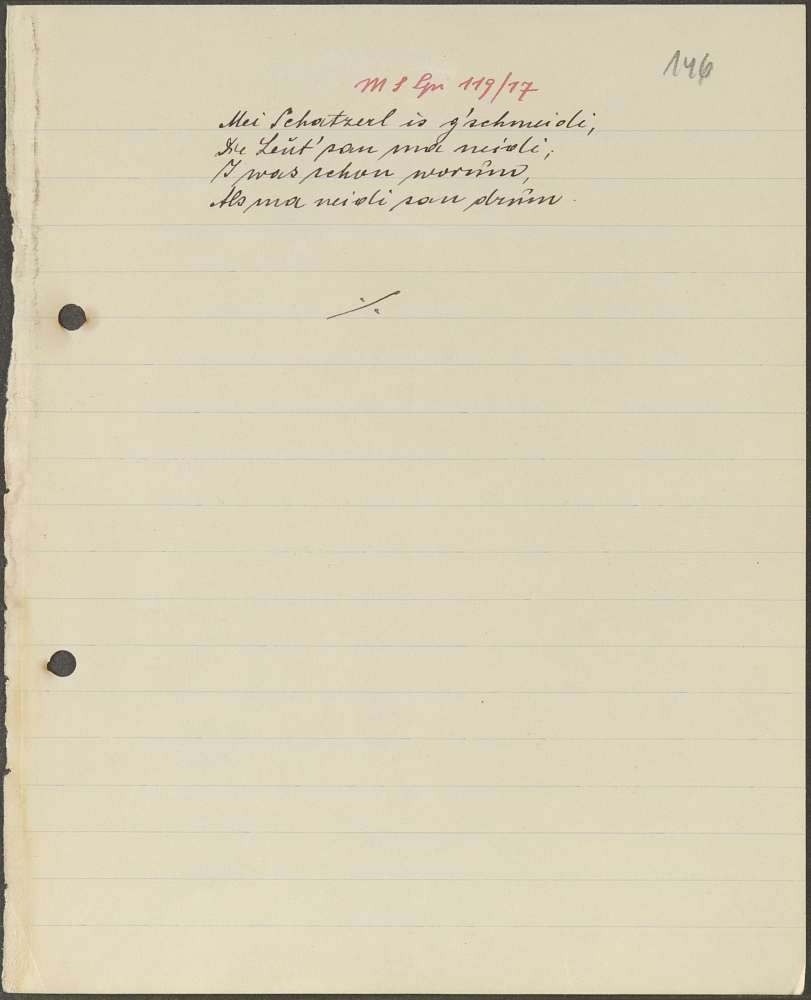 146
M S Gr 119/17
Mei Schatzerl is g'schmeidi,
De Leut' san ma neidi;
I was schon worum,
Als ma neidi san drum.